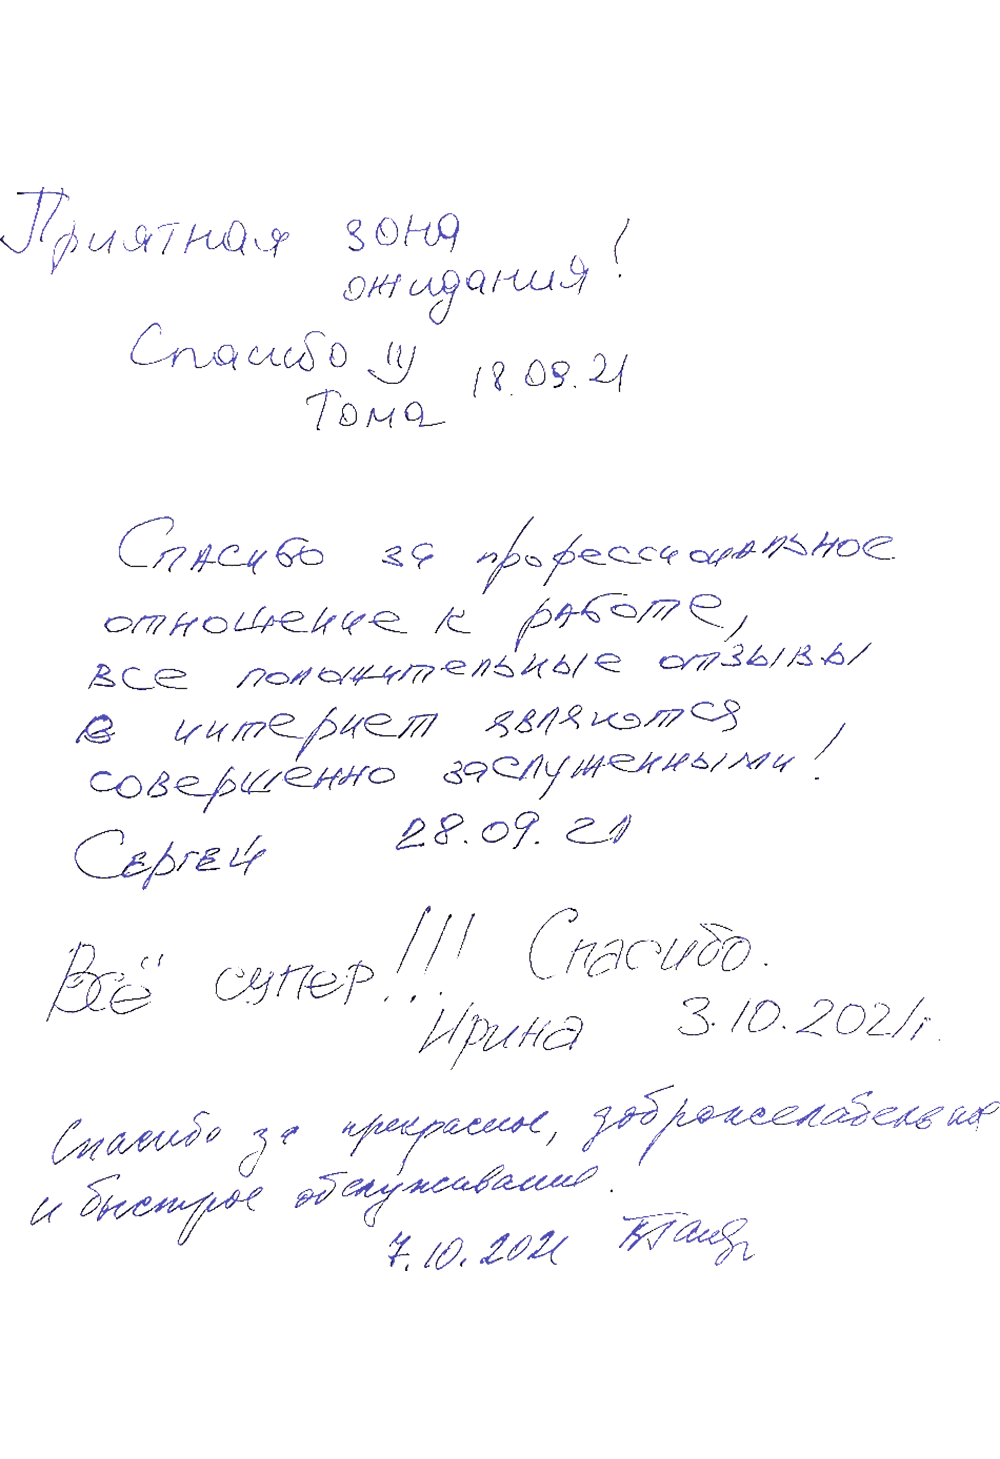 Приятная зона
ожидания!
Спасибо
18.09.21
Тома
Спасибо за профессиональное
отношение к работе,
все положительные отзывы
в интернет являются
совершенно заслуженными!
Сергей 28.09.21
Всё супер!!! Спасибо.
Ирина 3.10.2021г.
Спасибо за прекрасное, доброжелательное
и быстрое обслуживание.
7.10.2021